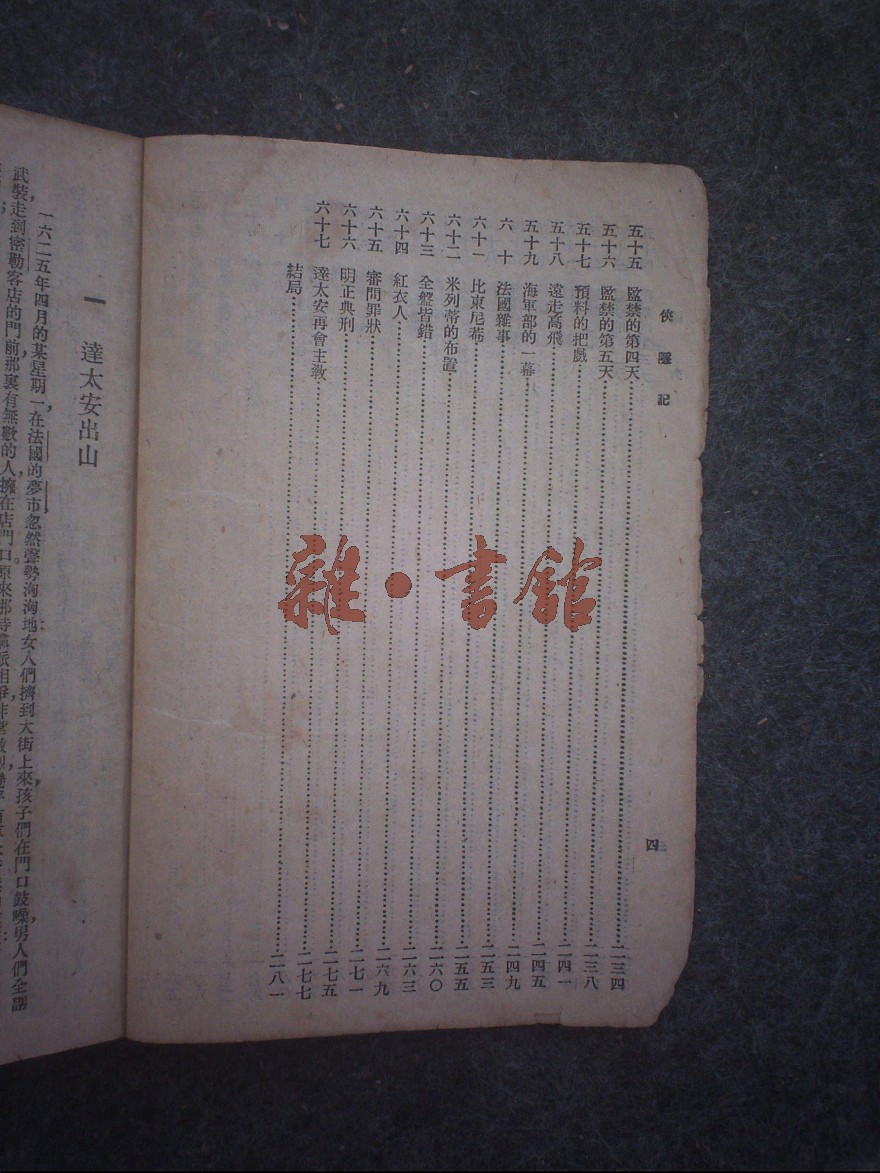 俠隱記
四
五十五 監禁的第四天……二三四
五十六 監禁的第五天……二三八
五十七 預料的把戲……二四一
五十八 遠走高飛……二四五
五十九 海軍部的一幕……二四九
六十 法國雜事……二五三
六十一 比東尼菴……二五五
六十二 米列蒂的布置……二六〇
六十三 全盤皆錯……二六三
六十四 紅衣人……二六九
六十五 審問罪狀……二七一
六十六 明正典刑……二七五
六十七 達太安再會主教……二七七
結局……二八一
一 達太安出山
一六二五年四月的某星期一，在法國的夢市忽然聲勢洶洶地女人們擠到大街上來，孩子們在門口鼓噪，男人們全副
武裝，走到密勒客店的門前，那裏有無數的人擁在店門口。原來那時黨派相爭非常
雜·書館